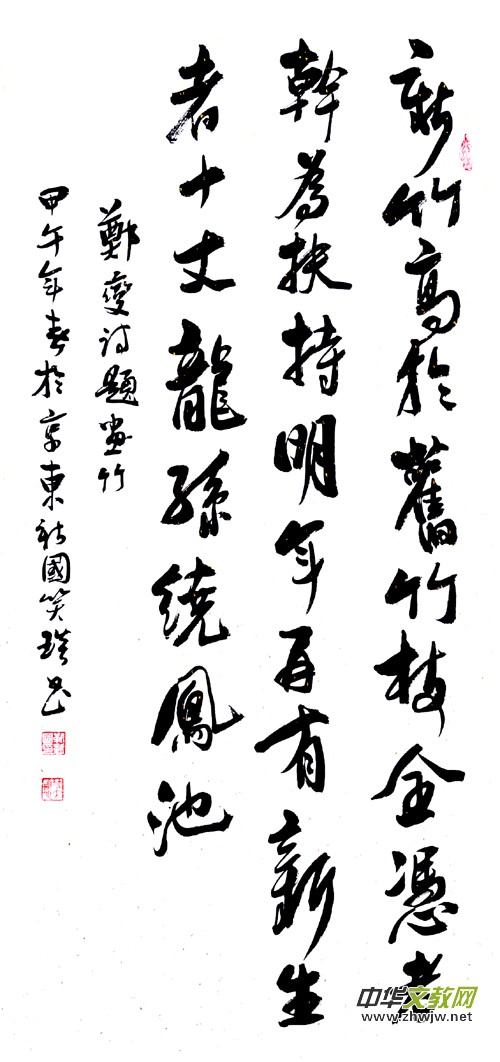 新竹高於舊竹枝全憑老
幹為扶持明年再有新生
者十丈龍孫繞鳳池
鄭燮詩題畫竹
甲午年春於京東國笑書
中华文教网
www.zhwjw.net